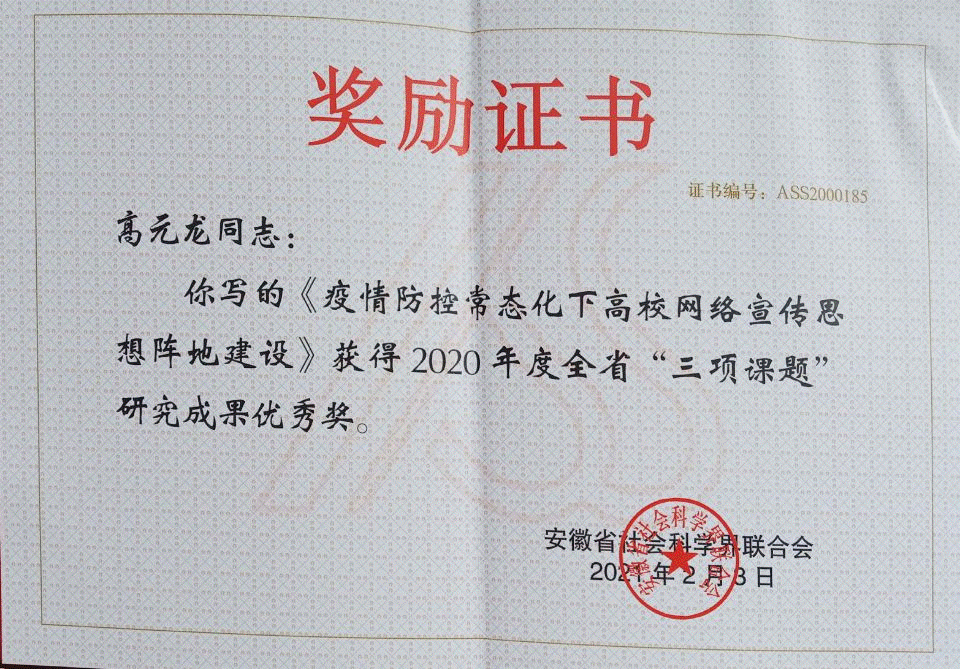 奖励证书
证书编号：ASS2000185
高元龙同志：
你写的《疫情防控常态化下高校网络宣传思
想阵地建设》获得 2020 年度全省“三项课题”
研究成果优秀奖。
安徽省社会科学界联合会
2021 年 2 月 3 日
安徽省社会科学界联合会